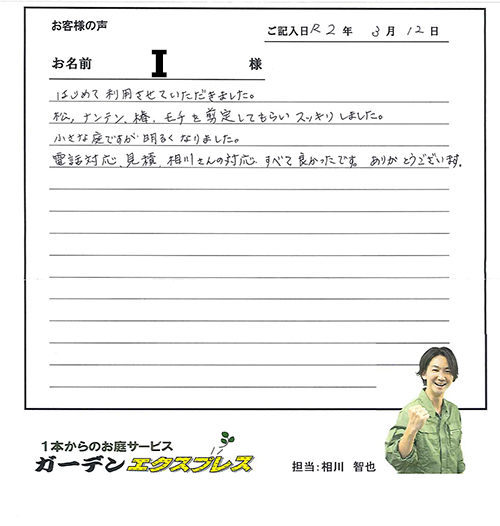 お客様の声
ご記入日 R2年 3月 12日
お名前 I 様
はじめて利用させていただきました。
松、ナンテン、椿、モチを剪定してもらいスッキリしました。
小さな庭ですが明るくなりました。
電話対応、見積、相川さんの対応 すべて良かったです。ありがとうございます。
1本からのお庭サービス
ガーデンエクスプレス
担当:相川 智也